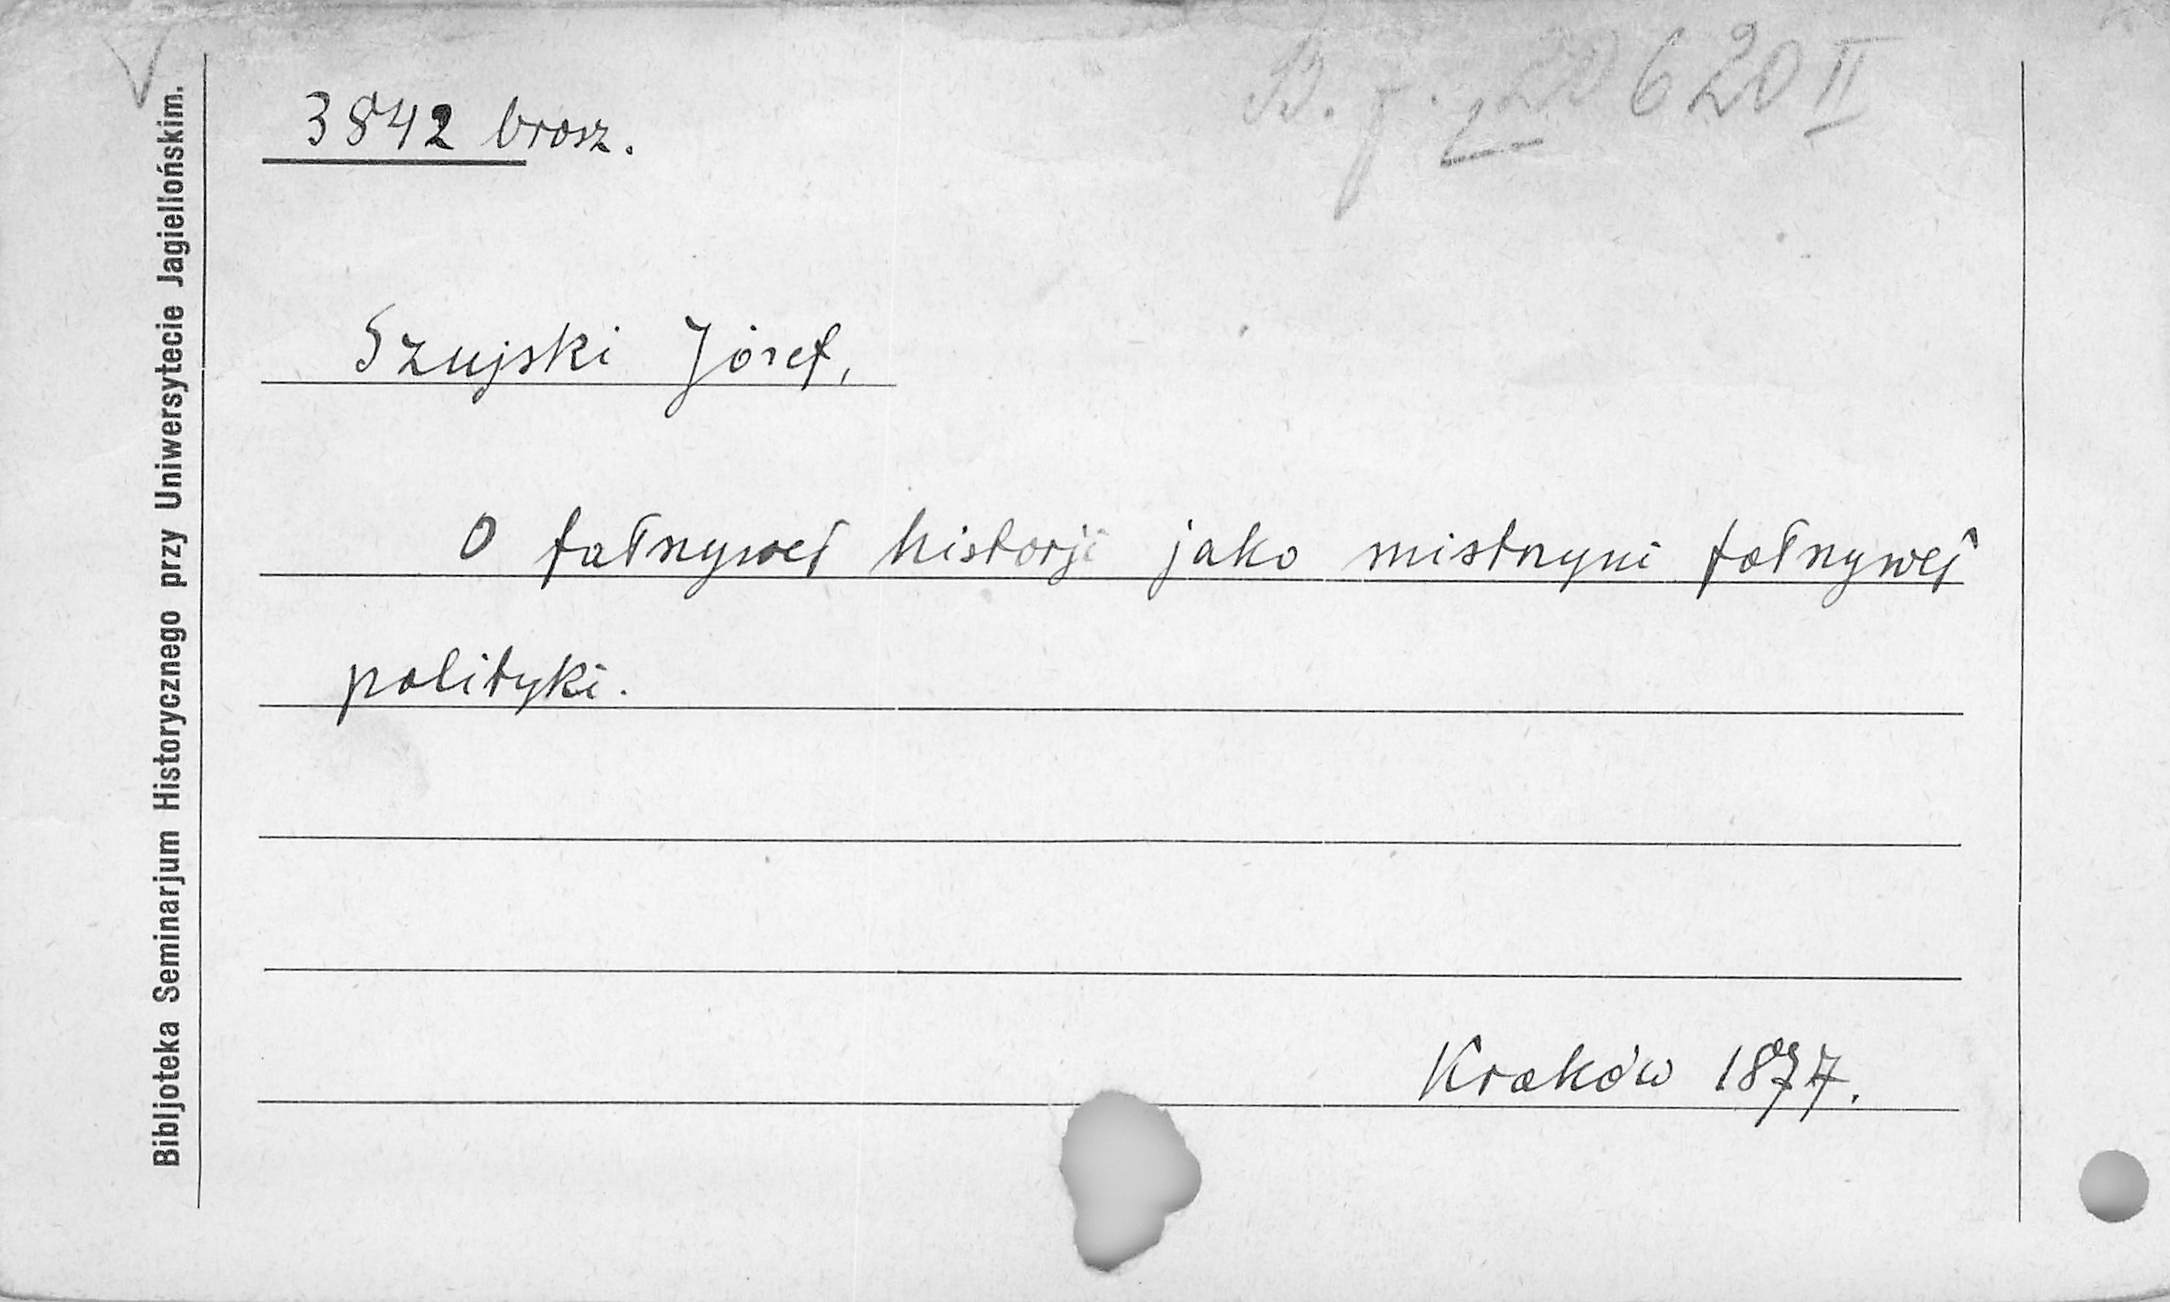 3842 brosz.
B. j. 20620 II
Szujski Józef,
O fałszywej historji jako mistrzyni fałszywej
polityki.
Kraków 1877.
Bibljoteka Seminarjum Historycznego przy Uniwersytecie Jagiellońskim.